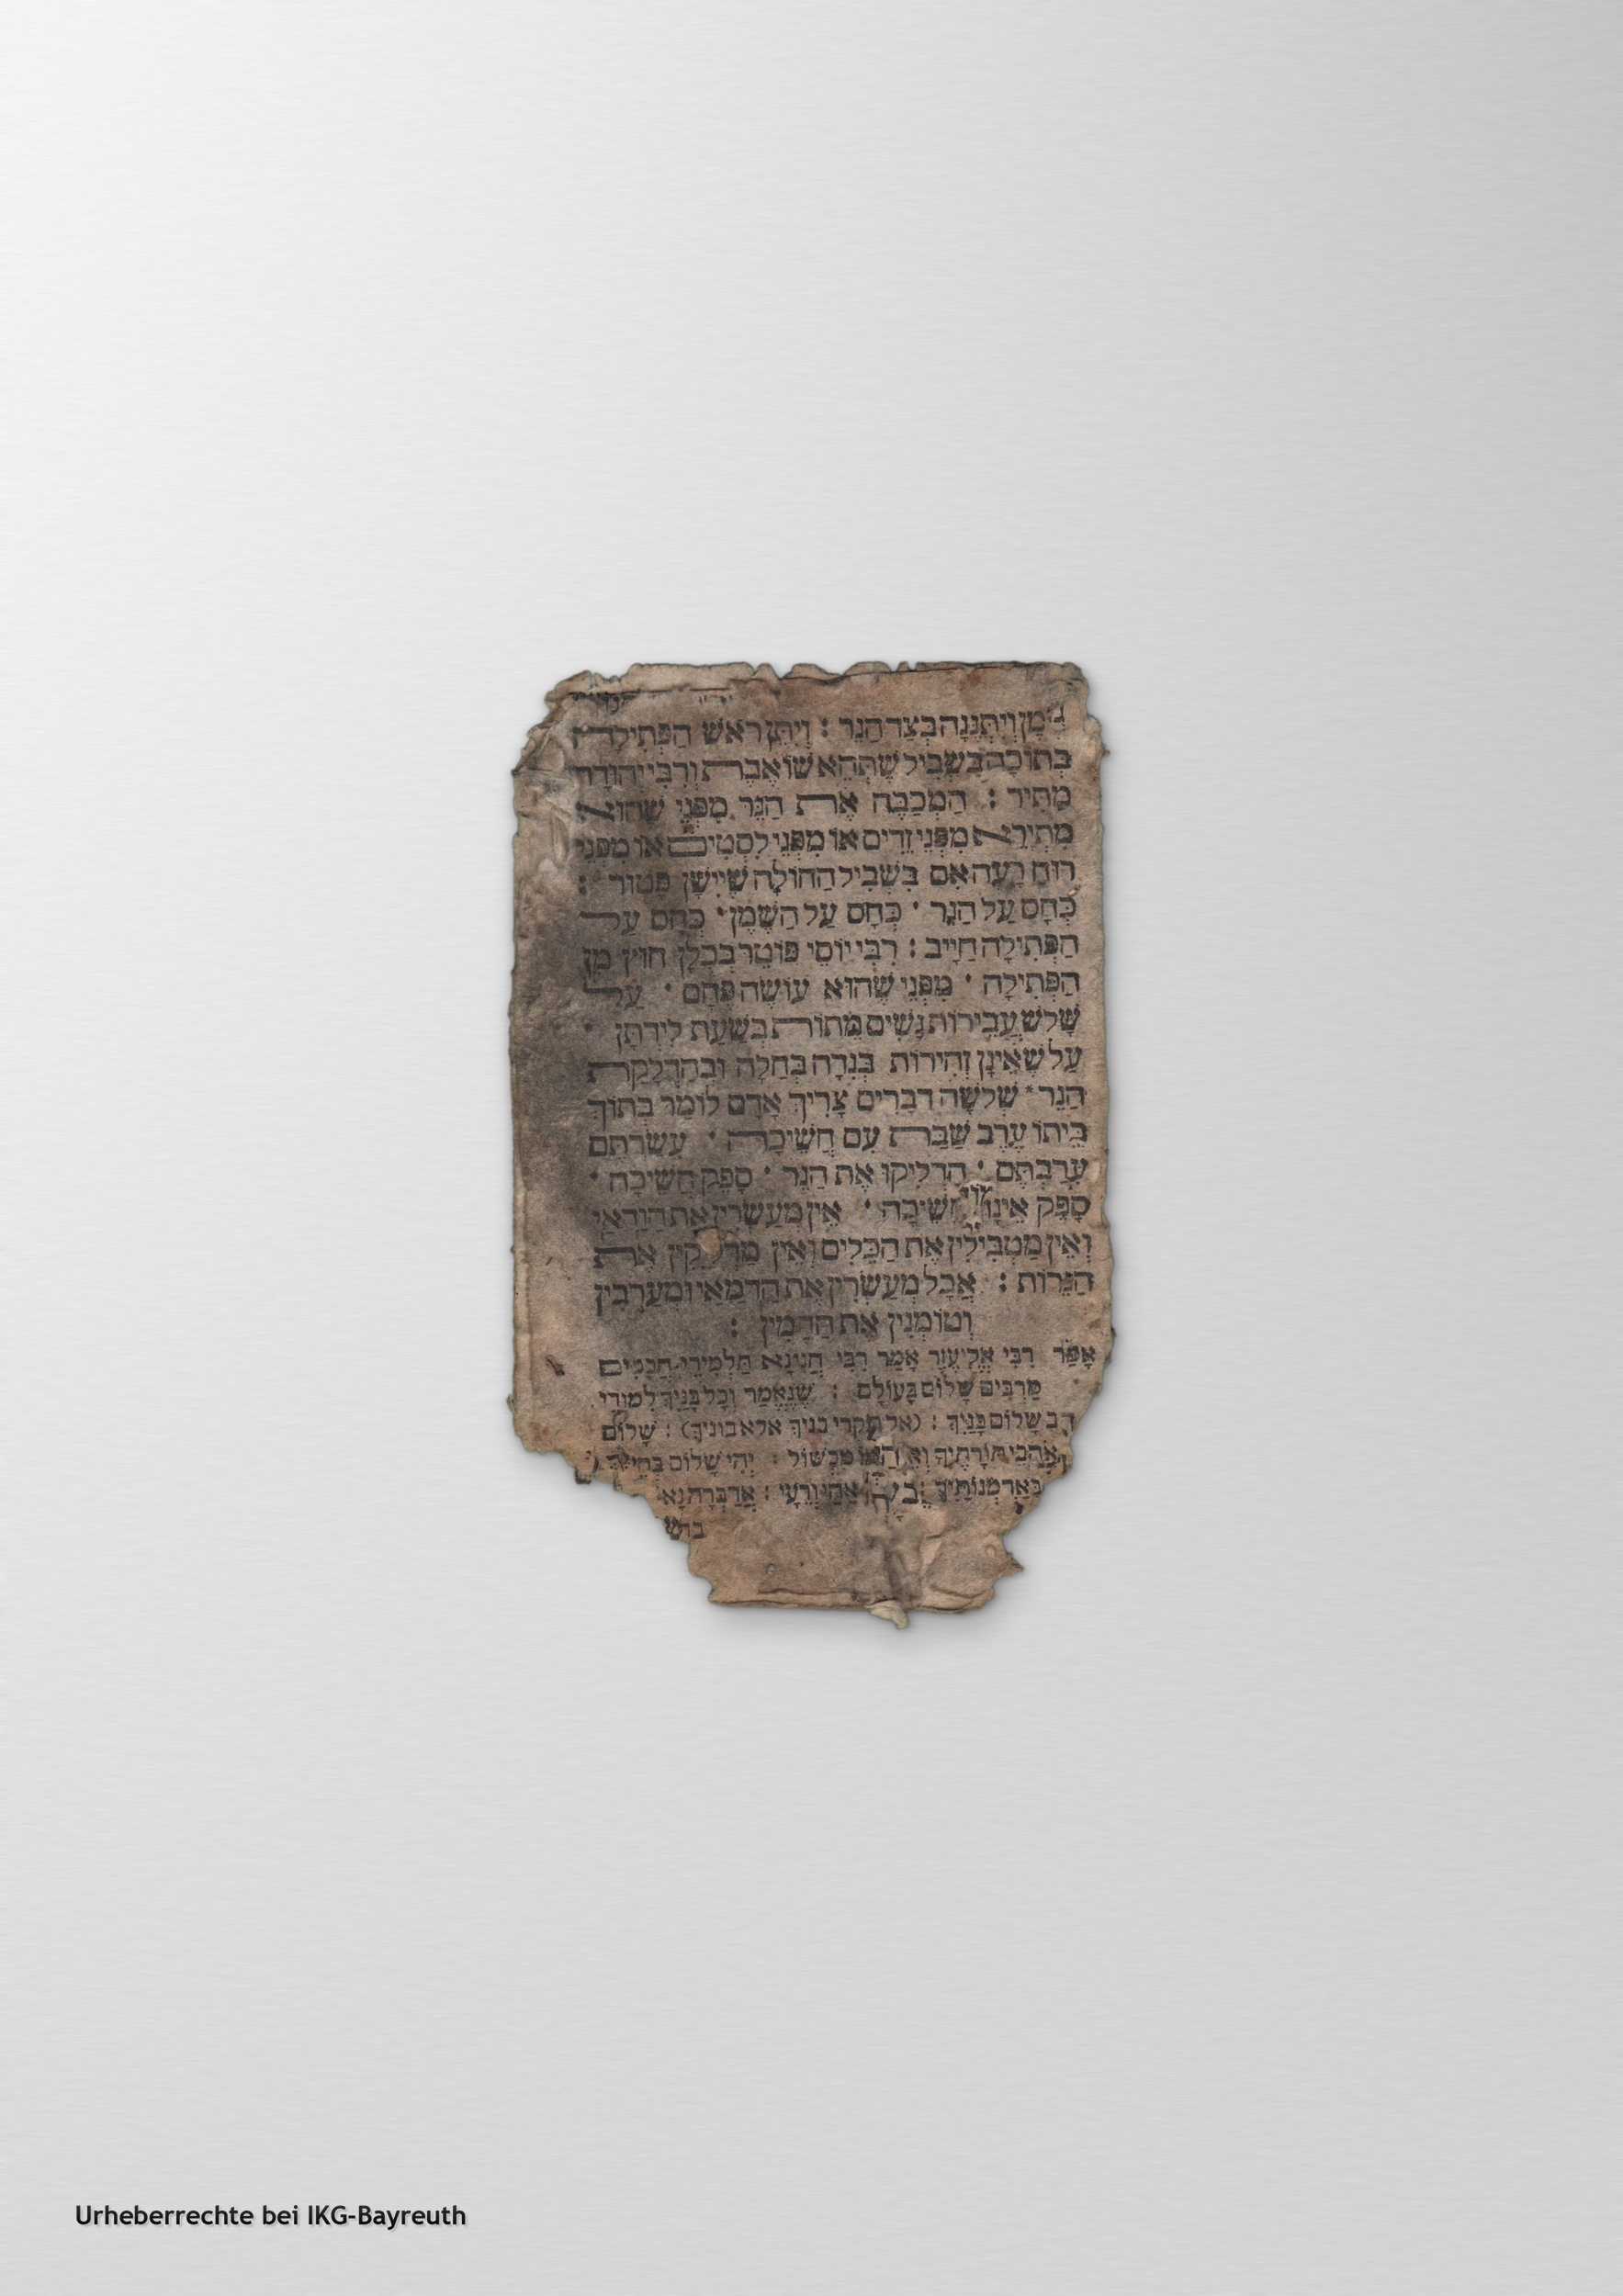 שֶׁמֶן וְיִתְּנֶנָּה בְּצַד הַנֵּר : וְיִתֵּן רֹאשׁ הַפְּתִילָה
בְּתוֹכָהּ בִּשְׁבִיל שֶׁתְּהֵא שׁוֹאֶבֶת וְרַבִּי יְהוּדָה
מַתִּיר : הַמְכַבֶּה אֶת הַנֵּר מִפְּנֵי שֶׁהוּא
מִתְיָרֵא מִפְּנֵי זֵדִים אוֹ מִפְּנֵי לִסְטִים אוֹ מִפְּנֵי
רוּחַ רָעָה אִם בִּשְׁבִיל הַחוֹלֶה שֶׁיִּישַׁן פָּטוּר :
כְּחָס עַל הַנֵּר · כְּחָס עַל הַשֶּׁמֶן · כְּחָס עַל
הַפְּתִילָה חַיָּיב : רַבִּי יוֹסֵי פּוֹטֵר בְּכֻלָּן חוּץ מִן
הַפְּתִילָה · מִפְּנֵי שֶׁהוּא עוֹשָׂהּ פֶּחָם · עַל
שָׁלֹשׁ עֲבֵירוֹת נָשִׁים מֵתוֹת בִּשְׁעַת לֵידָתָן ·
עַל שֶׁאֵינָן זְהִירוֹת בְּנִדָּה בְּחַלָּה וּבְהַדְלָקַת
הַנֵּר · שְׁלֹשָׁה דְבָרִים צָרִיךְ אָדָם לוֹמַר בְּתוֹךְ
בֵּיתוֹ עֶרֶב שַׁבָּת עִם חֲשֵׁיכָה · עִשַּׂרְתֶּם
עֵרַבְתֶּם · הַדְלִיקוּ אֶת הַנֵּר · סָפֵק חֲשֵׁיכָה ·
סָפֵק אֵינוֹ חֲשֵׁיכָה · אֵין מְעַשְּׂרִין אֶת הַוַּדָּאי
וְאֵין מַטְבִּילִין אֶת הַכֵּלִים וְאֵין מַדְלִיקִין אֶת
הַנֵּרוֹת : אֲבָל מְעַשְּׂרִין אֶת הַדְּמַאי וּמְעָרְבִין
וְטוֹמְנִין אֶת הַחַמִּין :
אָמַר רַבִּי אֶלְעָזָר אָמַר רַבִּי חֲנִינָא תַּלְמִידֵי חֲכָמִים
מַרְבִּים שָׁלוֹם בָּעוֹלָם : שֶׁנֶּאֱמַר וְכָל בָּנַיִךְ לִמּוּדֵי
רַב שְׁלוֹם בָּנָיִךְ : (אל תקרי בניך אלא בוניך) : שָׁלוֹם
לְאֹהֲבֵי תוֹרָתֶךָ וְאֵין לָמוֹ מִכְשׁוֹל : יְהִי שָׁלוֹם בְּחֵילֵךְ
בְּאַרְמְנוֹתָיִךְ : אַחַי וְרֵעָי : אֲדַבְּרָה נָּא